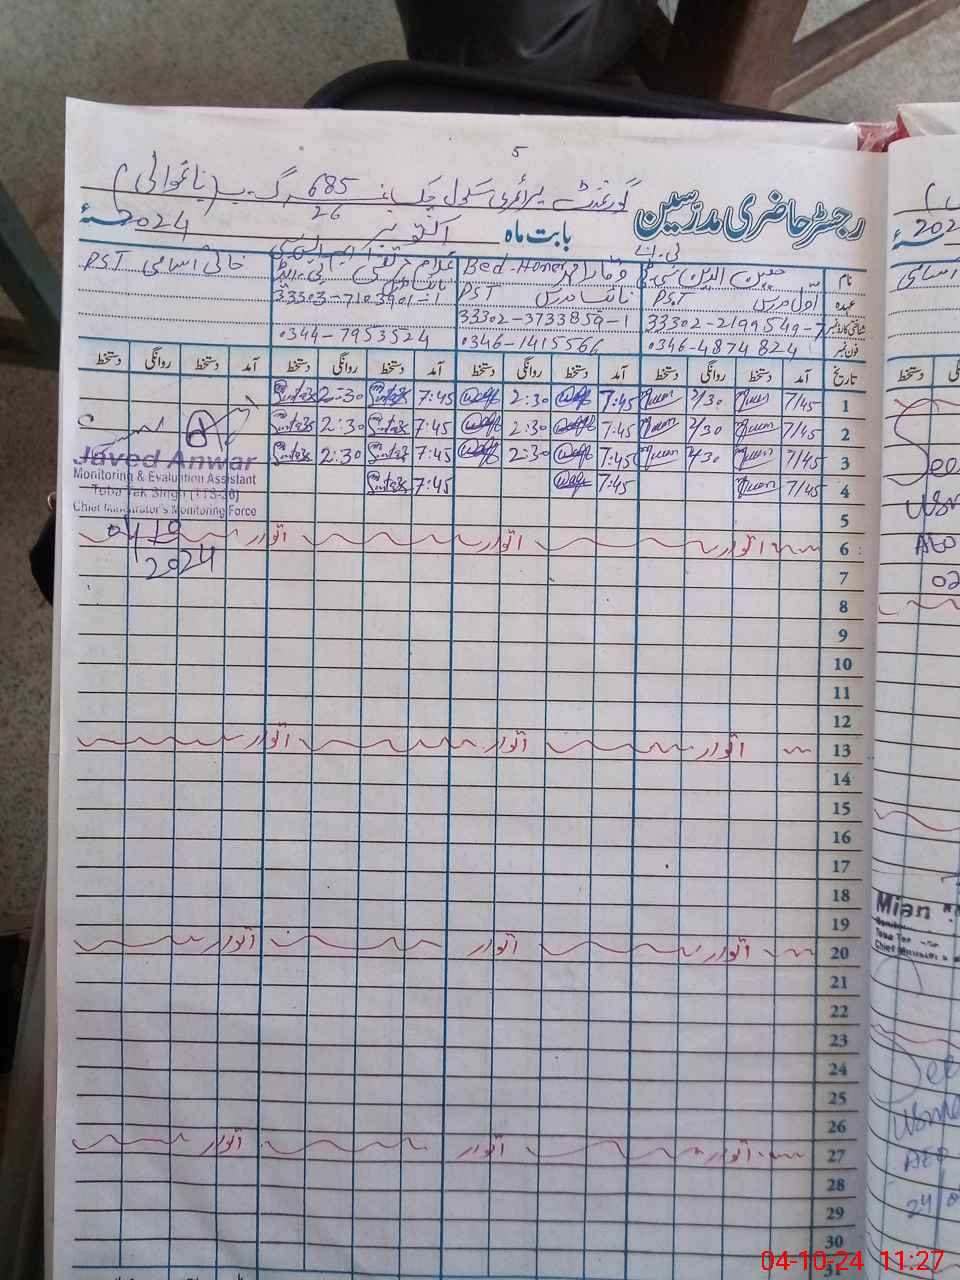 5
گورنمنٹ پرائمری سکول چک نمبر 685/26 گ ب (ناغوالی)
رجسٹر حاضری مدرسین
بابت ماہ اکتوبر 2024ء
نام
عہدہ
شناختی کارڈ نمبر
فون نمبر
معین الدین
اول مدرس PST
33302-2199549-7
0346-4874824
وقار
نائب مدرس PST
33302-3733859-1
0346-1415566
غلام
نائب مدرس
33303-7103901-1
0344-7953524
خالی اسامی PST
تاریخ آمد دستخط روانگی دستخط آمد دستخط روانگی دستخط آمد دستخط روانگی دستخط آمد دستخط روانگی دستخط
1 7/45 2/30 7:45 2:30 7:45 2:30
2 7/45 2/30 7:45 2:30 7:45 2:30
3 7/45 2/30 7:45 2:30 7:45 2:30
4 7/45 7:45 7:45
5
6 اتوار اتوار اتوار
7
8
9
10
11
12
13 اتوار اتوار اتوار
14
15
16
17
18
19
20 اتوار اتوار اتوار
21
22
23
24
25
26
27 اتوار اتوار اتوار
28
29
30
31
Javed Anwar
Monitoring & Evaluation Assistant
Toba Tek Singh (TTS-26)
Chief Minister's Monitoring Force
04/10
2024
202
اسامی
دستخط
AEO
02
Mian
Chief Minister's
AEO
24
04-10-24 11:27